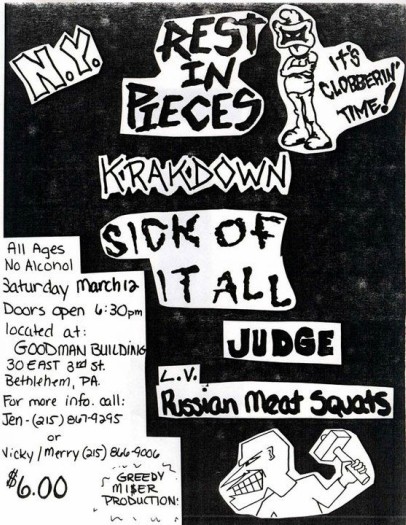 N.Y.
REST
IN
PIECES
IT'S
CLOBBERIN'
TIME!
KRAKDOWN
SICK OF
IT ALL
JUDGE
L.V.
Russian Meat Squats
All Ages
No Alcohol
Saturday March 12
Doors open 6:30pm
located at:
GOODMAN BUILDING
30 EAST 3rd St.
Bethlehem, PA.
For more info. call:
Jen-(215) 867-9295
or
Vicky/Merry (215) 866-9006
$6.00
GREEDY
MISER
PRODUCTION